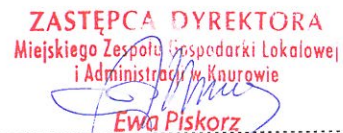 ZASTĘPCA DYREKTORA
Miejskiego Zespołu Gospodarki Lokalowej
i Administracji w Knurowie
Ewa Piskorz